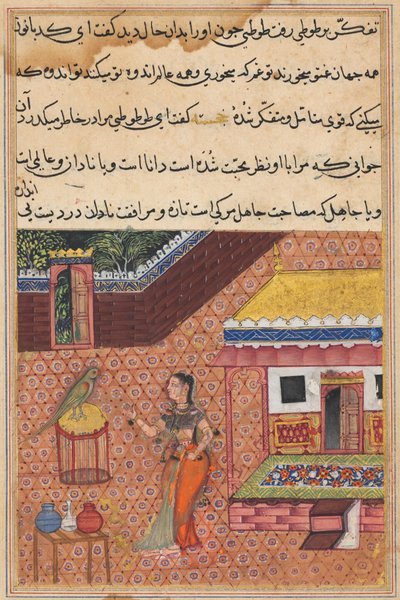 تفکر بر طوطی رفت طوطی چون او را بدان حال دید گفت ای کدبانو
همه جهان غم تو میخورند تو غم که میخوری و همه عالم اندوه تو میکند تو اندوه که
میکنی که قوی متامل و متفکر شدهٔ خجسته گفت ای طوطی مرا در خاطر میکدرد آن
جوانی که مرا با او نظر محبت شده است دانا است و یا نادان و عالمی است
و یا جاهل که مصاحبت جاهل مرکی است تازه و مرافقت نادان دردیست بی
اندازه